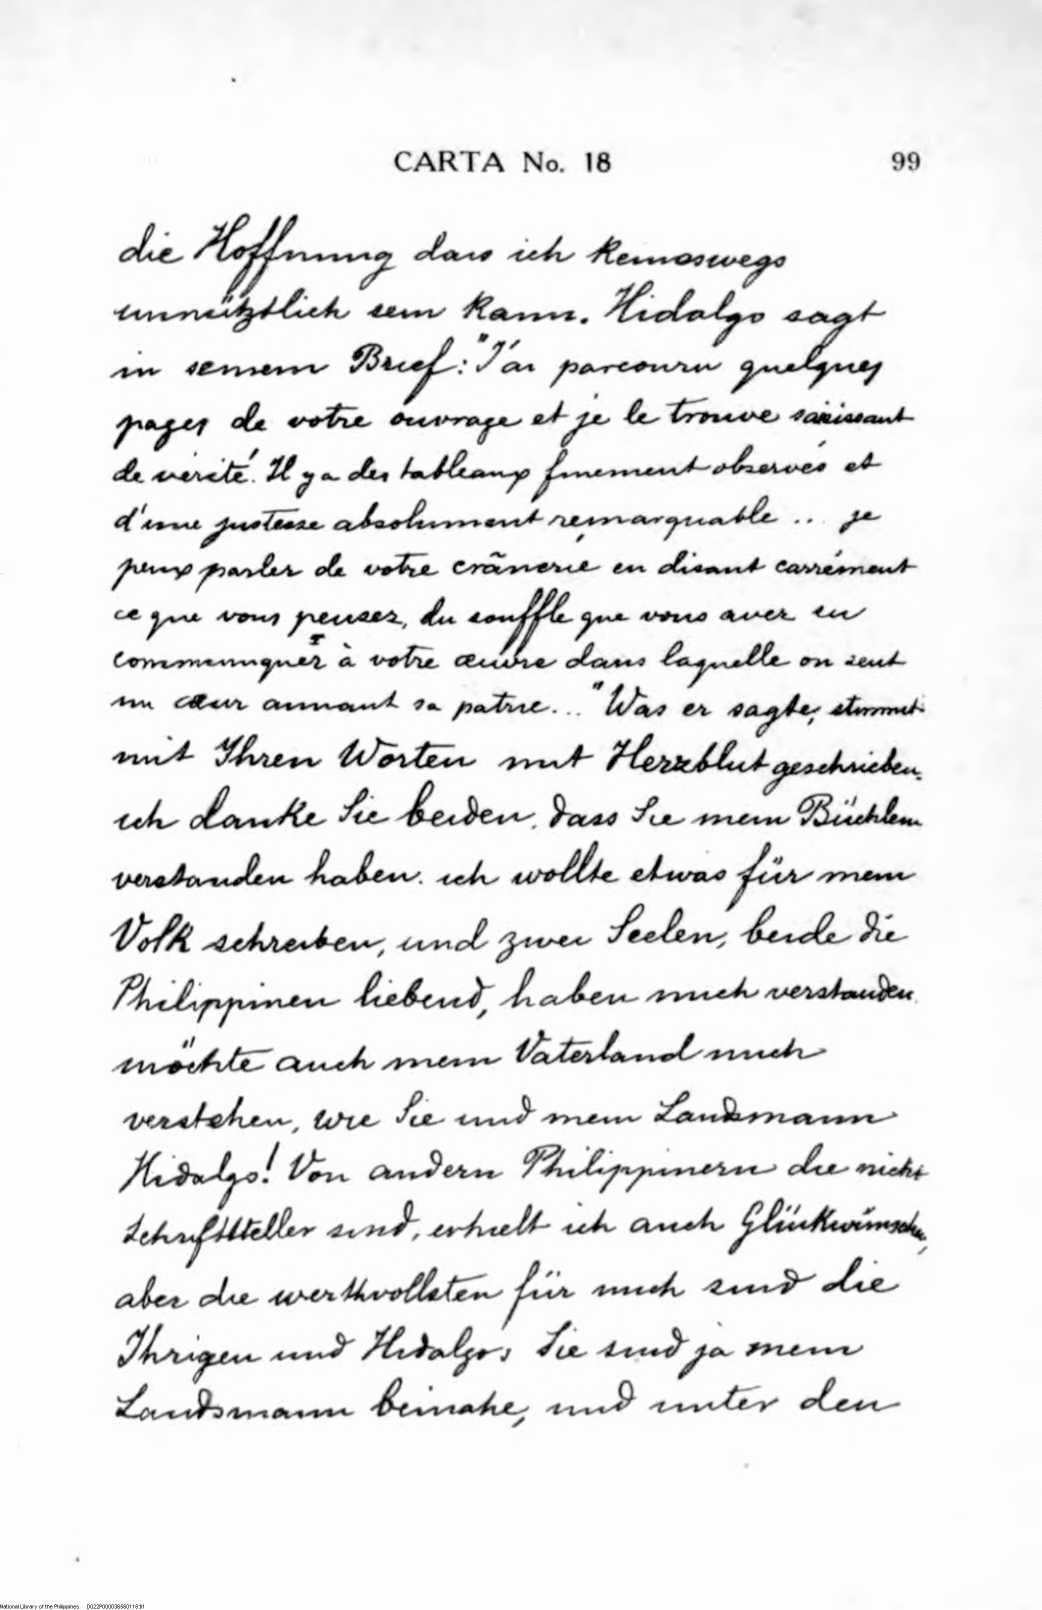 CARTA No. 18 99
die Hoffnung dass ich keineswegs
unnützlich sein kann. Hidalgo sagt
in seinem Brief: "J'ai parcouru quelques
pages de votre ouvrage et je le trouve saisissant
de vérité. Il y a des tableaux finement observés et
d'une justesse absolument remarquable .. je
peux parler de votre crânerie en disant carrément
ce que vous pensez, du souffle que vous avez su
communiquer à votre œuvre dans laquelle on sent
un cœur aimant sa patrie..." Was er sagte, stimmt
mit Ihren Worten mit Herzblut geschrieben.
ich danke Sie beiden. dass Sie mein Büchlein
verstanden haben. ich wollte etwas für mein
Volk schreiben, und zwei Seelen, beide die
Philippinen liebend, haben mich verstanden.
möchte auch mein Vaterland mich
verstehen, wie Sie und mein Landsmann
Hidalgo! Von andern Philippinern die nicht
Schriftsteller sind, erhielt ich auch Glückwünschen,
aber die werthvollsten für mich sind die
Ihrigen und Hidalgos; Sie sind ja mein
Landsmann beinahe, und unter den
National Library of the Philippines